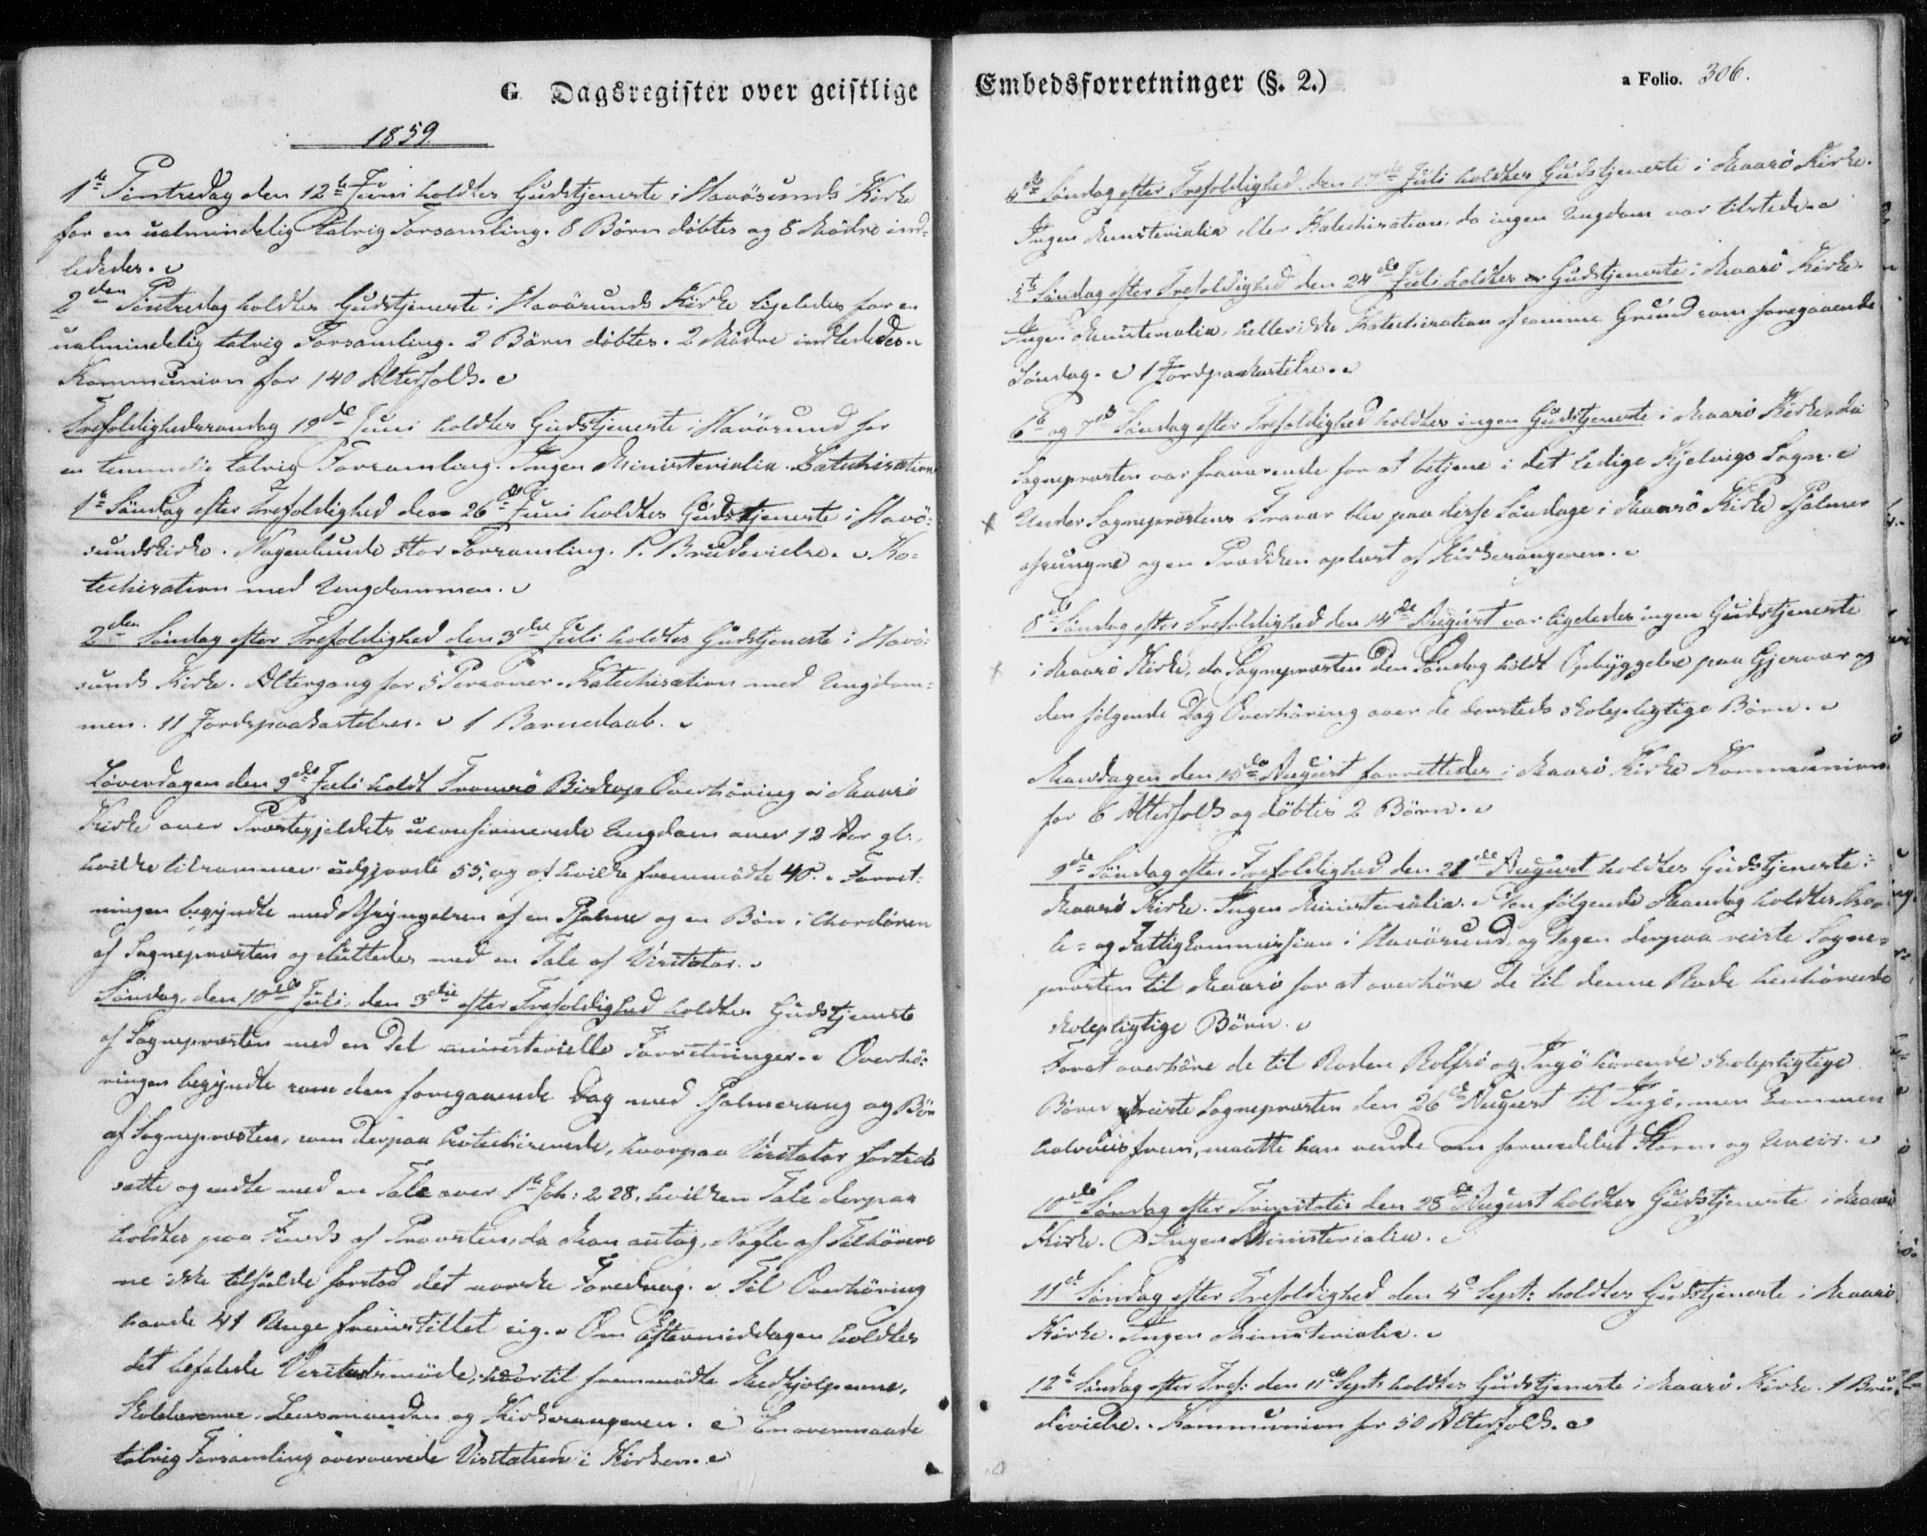 G Dagsregister over geistlige
1859
1ste Pintsedag den 12te Juni holdtes Gudstjeneste i Havösunds Kirke
for en ualmindelig talrig Forsamling. 8 Börn döbtes og 8 Mödre ind-
lededes.
2den Pintsedag holdtes Gudstjeneste i Havösunds Kirke ligeledes for en
ualmindelig talrig Forsamling. 2 Börn döbtes. 2 Mödre indlededes.
Kommunion for 140 Altersfolk.
Trefoldighedssondag 19de Juni holdtes Gudstjeneste i Havösund for
en temmelig talrig Forsamling. Ingen Ministerialia. Katechisation
1ste Söndag efter Trefoldighed den 26de Juni holdtes Gudstjeneste i Havö-
sundskirke. Nogenlunde stor Forsamling. 1. Brudevielse. Ka-
techisation med Ungdommen.
2den Söndag efter Trefoldighed den 3die Juli holdtes Gudstjeneste i Havö-
sunds Kirke. Altergang for 5 Personer. Katechisation med Ungdom-
men. 11 Jordspaakastelser. 1 Barnedaab.
Löverdagen den 9de Juli holdt Tromsö Biskop Overhöring i Maasö
Kirke over Præstegjeldets uconfirmerede Ungdom over 12 Aar gl.,
hvilke tilsammen udgjorde 55, og af hvilke fremmödte 40. Forret-
ningen begyndte med Afsyngelsen af en Psalme og en Bön i Chordören
af Sognepræsten og sluttedes med en Tale af Visitator.
Söndag, den 10de Juli, den 3die efter Trefoldighed holdtes Gudstjeneste
af Sognepræsten med en Del ministerielle Forretninger. Overhö-
ringen begyndte som den foregaaende Dag med Psalmesang og Bön
af Sognepræsten, som derpaa katechiserede, hvorpaa Visitator fortsatte
satte og endte med en Tale over 1ste Joh: 2, 28, hvilken Tale derpaa
holdtes paa Finsk af Provsten, da Man antog, Nogle af Tilhörer-
ne ikke tilfulde forstod det norske Foredrag. Til Overhöring
havde 41 Unge fremstillet sig. Om Eftermiddagen holdtes
det befalede Visitatsmöde, hvortil fremmödte Medhjelperne,
Skolelærerne, Lensmanden og Kirkesangeren. En overmaade
talrig Forsamling overværede Visitatsen i Kirken.
Embedsforretninger (§. 2.)
a Folio. 306.
4de Söndag efter Trefoldighed den 17de Juli holdtes Gudstjeneste i Maasö Kirke.
Ingen Ministerialia eller Katechisation, da ingen Ungdom var tilstede.
5te Söndag efter Trefoldighed den 24de Juli holdtes Gudstjeneste i Maasö Kirke.
Ingen Ministerialia, heller ikke Katechisation af samme Grund som foregaaende
Söndag. 1 Jordpaakastelse.
6te og 7de Söndag efter Trefoldighed holdtes ingen Gudstjeneste i Maasö Kirke, da
Sognepræsten var fraværende for at betjene i det ledige Kjelvigs Sogn.
x Under Sognepræstens Fravær blev paa disse Söndage i Maasö Kirke Psalmer
afsungne og en Prædiken oplæst af Kirkesangeren.
8de Söndag efter Trefoldighed den 14de August var ligeledes ingen Gudstjeneste
x i Maasö Kirke, da Sognepræsten den Söndag holdt Opbyggelse paa Gjesvær og
den følgende Dag Overhöring over de dersteds skolepligtige Börn.
Mandagen den 15de August forrettedes i Maasö Kirke Kommunion
for 6 Altersfolk og döbtes 2 Börn.
9de Söndag efter Trefoldighed den 21de August holdtes Gudstjeneste i
Maasö Kirke. Ingen Ministerialia. Den følgende Mandag holdtes Sko-
le- og Fattigkommission i Havösund, og Dagen derpaa reiste Sogne-
præsten til Maasö for at overhöre de til denne Rode henhörende
skolepligtige Börn.
For at overhöre de til Roden Rolfsö og Ingö hörende skolepligtige
Börn reiste Sognepræsten den 26de August til Ingö, men kommen
halvveis frem, maatte han vende om formedelst Storm og Uveir.
10de Söndag efter Trinitatis den 28de August holdtes Gudstjeneste i Maasö
Kirke. Ingen Ministerialia.
11te Söndag efter Trefoldighed den 4de Sept: holdtes Gudstjeneste i Maasö
Kirke. Ingen Ministerialia.
12te Söndag efter Tref: den 11te Septb holdtes Gudstjeneste i Maasö Kirke. 1 Bru-
devielse. Kommunion for 50 Altersfolk.